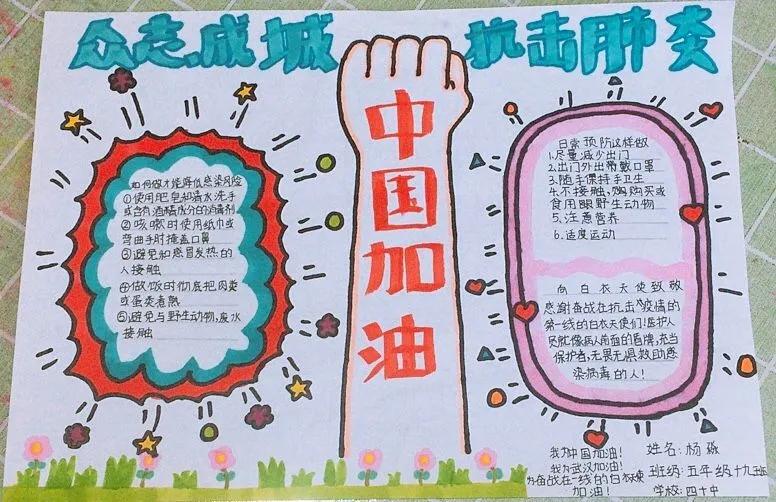 众志成城
抗击肺炎
中国加油
如何做才能降低感染风险
①使用肥皂和清水洗手
或含有酒精成分的消毒剂
②咳嗽时使用纸巾或
弯曲手肘掩盖口鼻
③避免和感冒发热的
人接触
④做饭时彻底把肉类
或蛋类煮熟
⑤避免与野生动物,废水
接触
日常预防这样做
1.尽量减少出门
2.出门外出带戴口罩
3.随手保持手卫生
4.不接触,购购买或
食用眼野生动物
5.注意营养
6.适度运动
向白衣天使致敬
感谢奋战在抗击疫情的
第一线的白衣天使们!医护人
员就像病人前面的盾牌,充当
保护者,无畏无惧救助感
染病毒的人!
我为中国加油!
我为武汉加油!
为奋战在一线的白衣天使
加油!
姓名:杨
班级:五年级十九班
学校:四十中